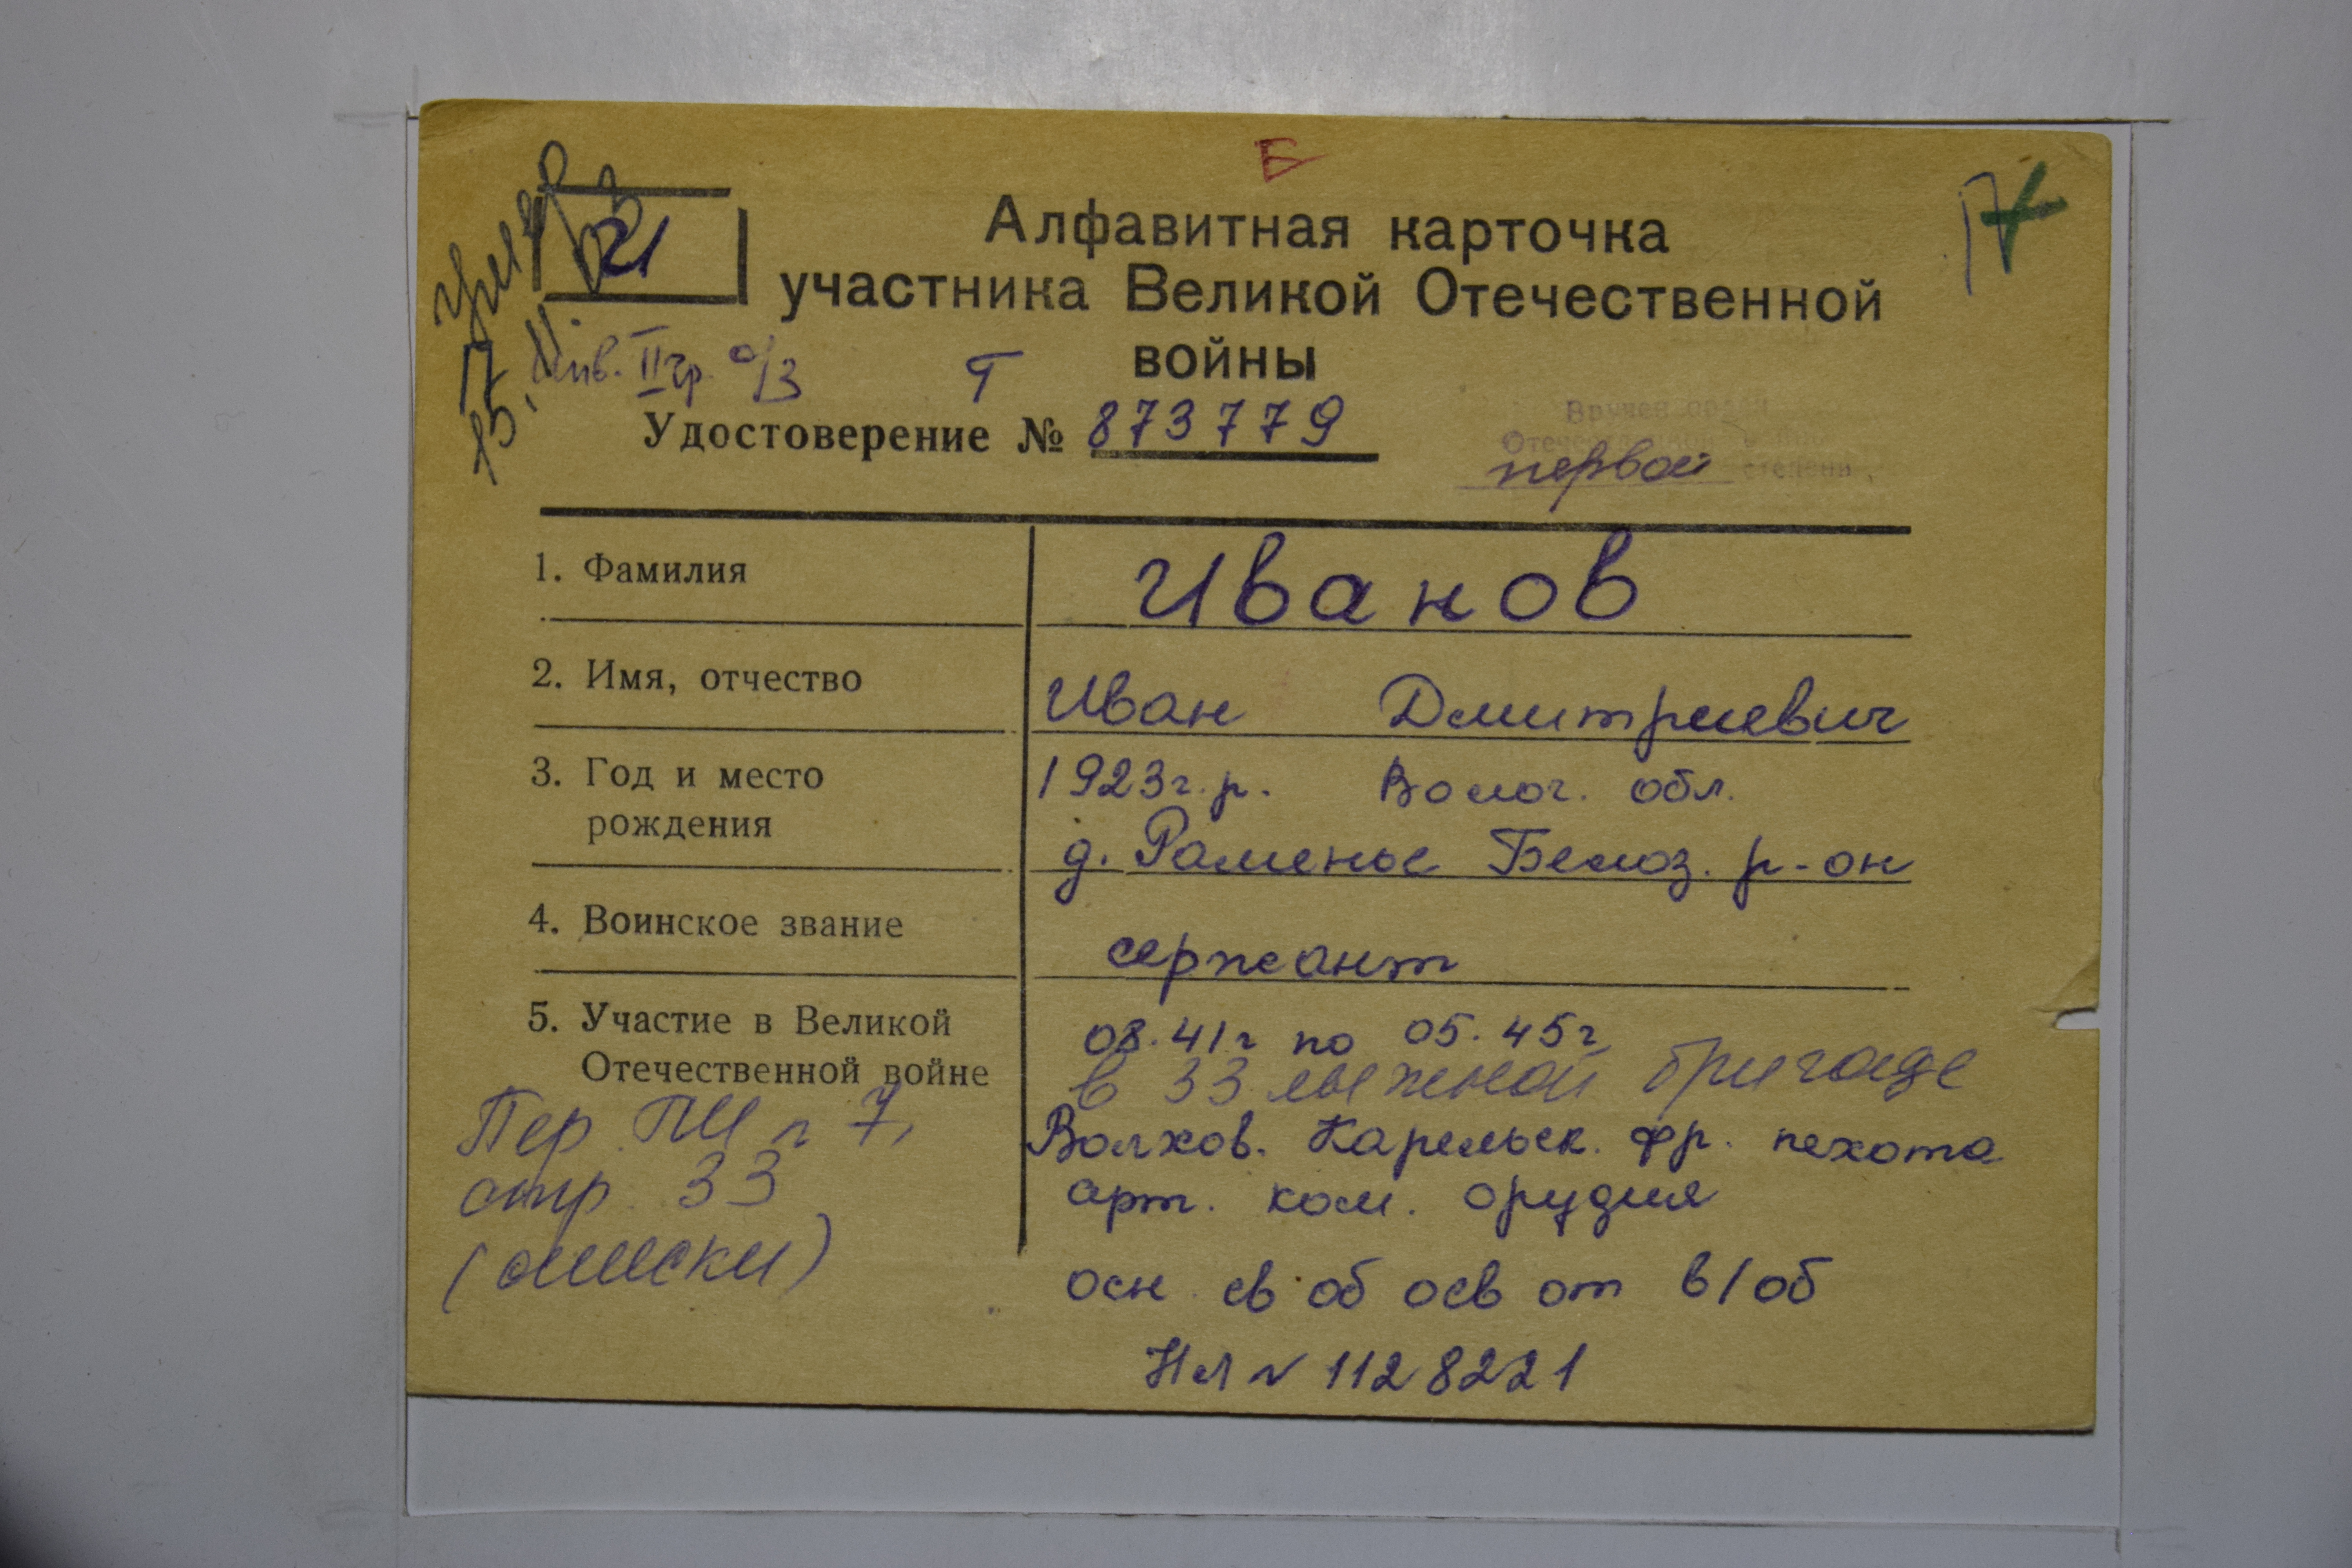 Б
17
21
Алфавитная карточка
участника Великой Отечественной
войны
умер
Инв. II гр. о/з
Т
Удостоверение № 873779
Вручен орден
Отечественной войны
первой степени
1. Фамилия Иванов
2. Имя, отчество Иван Дмитриевич
3. Год и место 1923г.р. Волог. обл.
рождения д. Раменье Белоз. р-он
4. Воинское звание сержант
5. Участие в Великой 08.41г по 05.45г
Отечественной войне в 33 лыжной бригаде
Пер. ПИ п 7, Волхов. Карельск. фр. пехота
стр. 33 арт. ком. орудия
(списки) осн св об осв от в/об
НЛ № 1128221